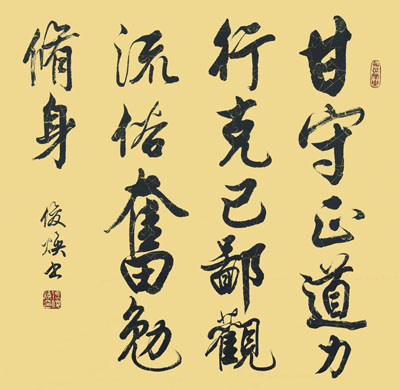 甘守正道力
行克己鄙觀
流俗奮勉
脩身
俊煥书